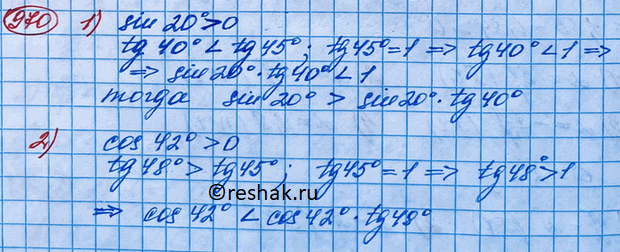 970 1) sin 20° > 0
tg 40° < tg 45°; tg 45° = 1 => tg 40° < 1 =>
=> sin 20° · tg 40° < 1
тогда sin 20° > sin 20° · tg 40°
2) cos 42° > 0
tg 48° > tg 45°; tg 45° = 1 => tg 48° > 1
©reshak.ru
=> cos 42° < cos 42° · tg 48°